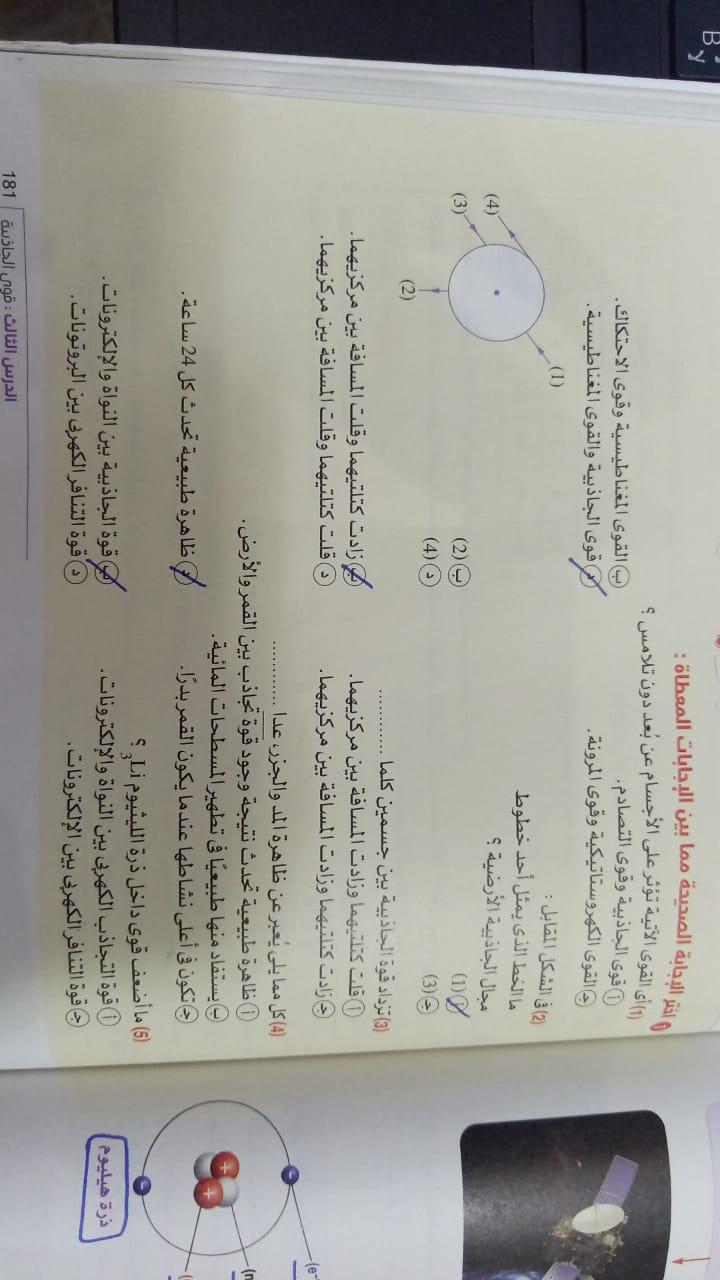 ١ اختر الإجابة الصحيحة مما بين الإجابات المعطاة :
(1) أى القوى الآتية تؤثر على الأجسام عن بُعد دون تلامس ؟
أ قوى الجاذبية وقوى التصادم.
ب القوى المغناطيسية وقوى الاحتكاك.
ج القوى الكهروستاتيكية وقوى المرونة.
د قوى الجاذبية والقوى المغناطيسية.
(2) فى الشكل المقابل :
ما الخط الذى يمثل أحد خطوط
مجال الجاذبية الأرضية ؟
أ (1)
ب (2)
ج (3)
د (4)
(1)
(2)
(3)
(4)
(3) تزداد قوة الجاذبية بين جسمين كلما ............
أ قلت كتلتيهما وزادت المسافة بين مركزيهما.
ب زادت كتلتيهما وقلت المسافة بين مركزيهما.
ج زادت كتلتيهما وزادت المسافة بين مركزيهما.
د قلت كتلتيهما وقلت المسافة بين مركزيهما.
(4) كل مما يلى يُعبر عن ظاهرة المد والجزر، عدا ............
أ ظاهرة طبيعية تحدث نتيجة وجود قوة تجاذب بين القمر والأرض.
ب يستفاد منها طبيعيًا فى تطهير المسطحات المائية.
ج تكون فى أعلى نشاطها عندما يكون القمر بدرًا.
د ظاهرة طبيعية تحدث كل 24 ساعة.
(5) ما أضعف قوى داخل ذرة الليثيوم ₃Li ؟
أ قوة التجاذب الكهربى بين النواة والإلكترونات.
ب قوة الجاذبية بين النواة والإلكترونات.
ج قوة التنافر الكهربى بين الإلكترونات.
د قوة التنافر الكهربى بين البروتونات.
181 الدرس الثالث : قوى الجاذبية
(e⁻
(n
ذرة هيليوم
B
لا